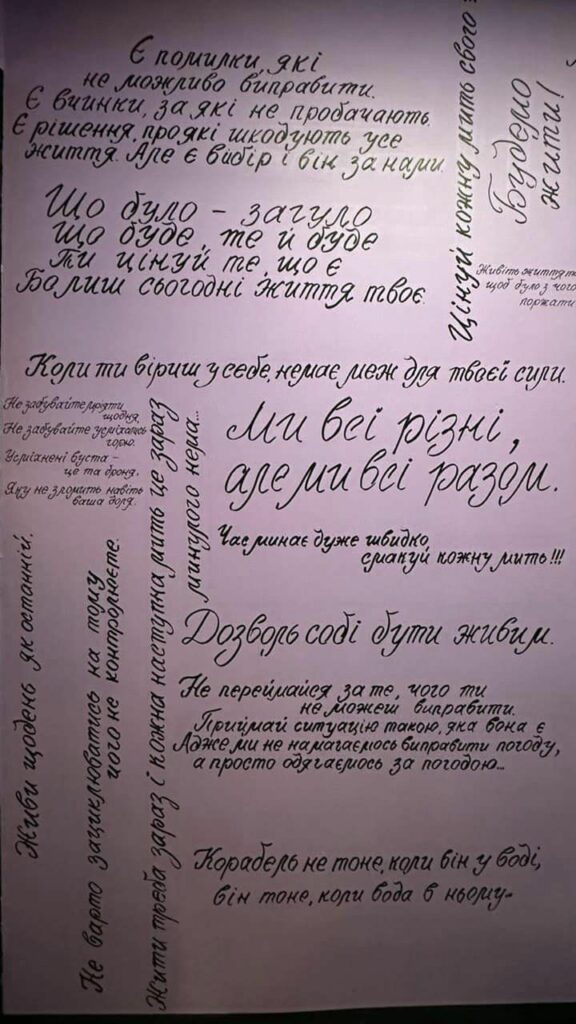 Є помилки, які
не можливо виправити.
Є вчинки, за які не пробачають.
Є рішення, про які шкодують усе
життя. Але є вибір і він за нами
Цінуй кожну мить свого
Будемо
жити!
Живіть життя
щоб було з чого
поржати
Що було – загуло
Що буде, те й буде
Ти цінуй те, що є
Бо лиш сьогодні життя твоє.
Коли ти віриш у себе, немає меж для твоєї сили.
Не забувайте мріяти
щодня.
Не забувайте усміхатись
горю.
Усміхнені вуста –
це та броня,
Яку не зломить навіть
ваша доля.
Ми всі різні,
але ми всі разом.
Час минає дуже швидко,
смакуй кожну мить!!!
Дозволь собі бути живим.
Не переймайся за те, чого ти
не можеш виправити.
Приймай ситуацію такою, яка вона є
Адже ми не намагаємось виправити погоду,
а просто одягаємось за погодою...
Корабель не тоне, коли він у воді,
він тоне, коли вода в ньому
Живи щодень як останній.
Не варто зациклюватись на тому
чого не контролюєте.
Жити треба зараз і кожна наступна мить це зараз
минулого нема...